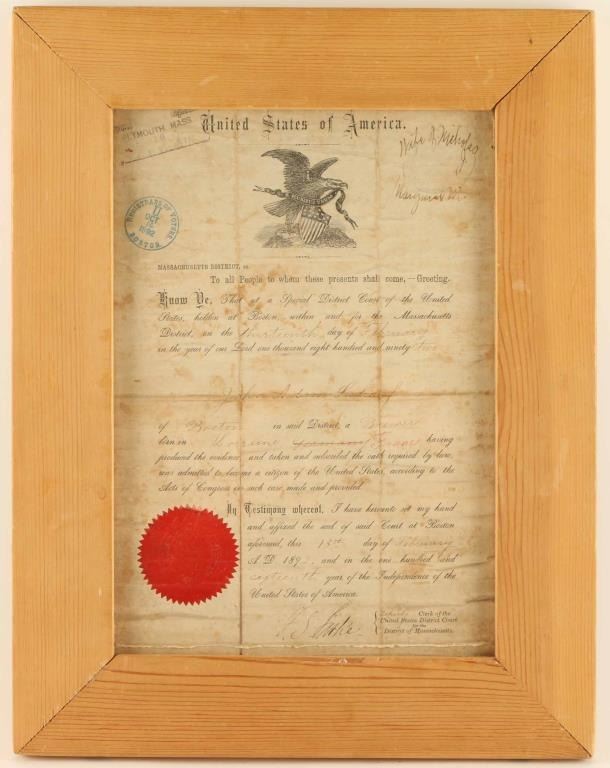 PLYMOUTH MASS
United States of America.
Wife of Nicholas
REGISTRARS OF VOTERS
11
OCT
1892
BOSTON
MASSACHUSETTS DISTRICT, ss.
To all People to whom these presents shall come,—Greeting.
Know Ye, That at a Special District Court of the United
States, holden at Boston, within and for the Massachusetts
District, on the day of February
in the year of our Lord one thousand eight hundred and ninety two
John
of Boston in said District, a Brewer
born in Lorraine Germany France having
produced the evidence, and taken and subscribed the oath required by law,
was admitted to become a citizen of the United States, according to the
Acts of Congress in such case made and provided.
In Testimony whereof, I have hereunto set my hand
and affixed the seal of said Court at Boston
aforesaid, this 15th day of February
A. D. 189 , and in the one hundred and
sixteenth year of the Independence of the
United States of America.
Deputy Clerk of the
United States District Court
for the
District of Massachusetts.